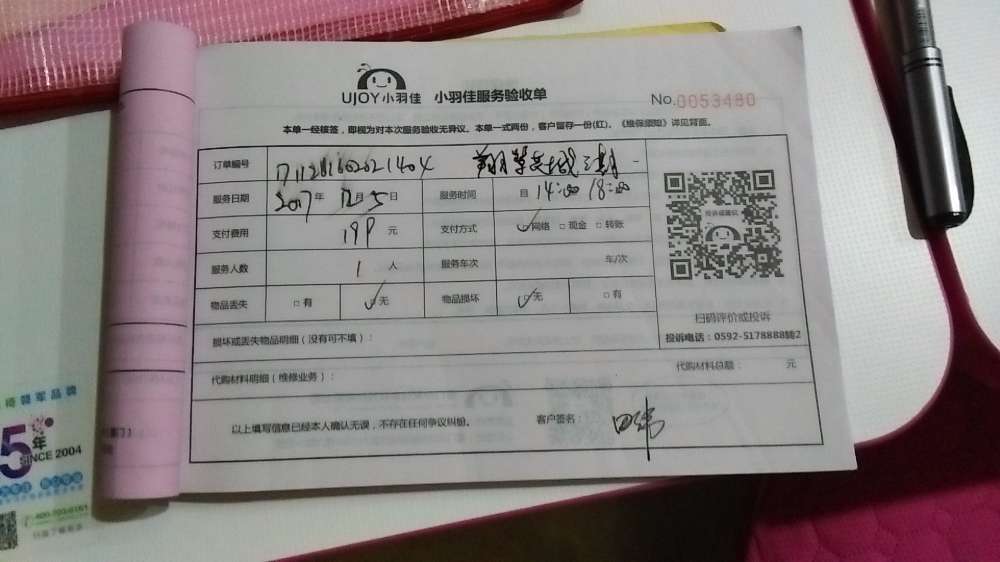 UJOY小羽佳 小羽佳服务验收单
No.0053480
本单一经核签，即视为对本次服务验收无异议。本单一式两份，客户留存一份(红)。《维保须知》详见背面。
订单编号
服务日期 2017年 12月5日 服务时间 14:00 18:00
支付费用 198 元 支付方式 ☑网络 □现金 □转账
服务人数 1 人 服务车次 车/次
物品丢失 □有 ☑无 物品损坏 ☑无 □有
扫码评价或投诉
投诉电话：0592-5178888转2
损坏或丢失物品明细（没有可不填）：
代购材料明细（维修业务）： 代购材料总额： 元
以上填写信息已经本人确认无误，不存在任何争议纠纷。 客户签名：
领军品牌
5年
SINCE 2004